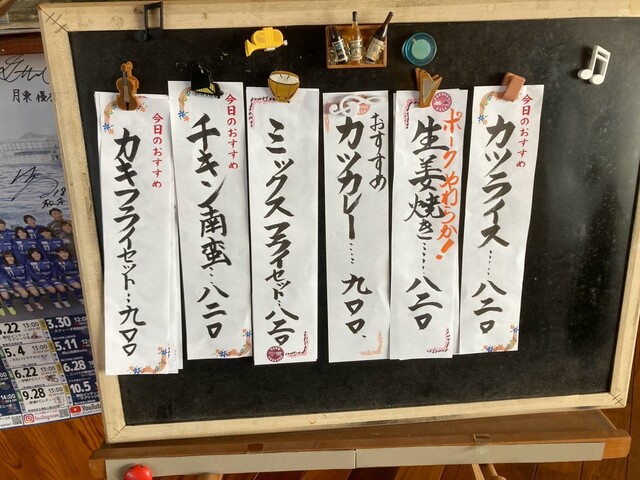 今日のおすすめ
カツライス……八二〇
ポークやわらか!
生姜焼き……八二〇
おすすめ
カツカレー……九〇〇
ミックスフライセット…八二〇
今日のおすすめ
チキン南蛮…八二〇
今日のおすすめ
カキフライセット…九〇〇
3.30
5.4
5.11
6.22
6.28
9.28
10.5
Instagram
YouTube